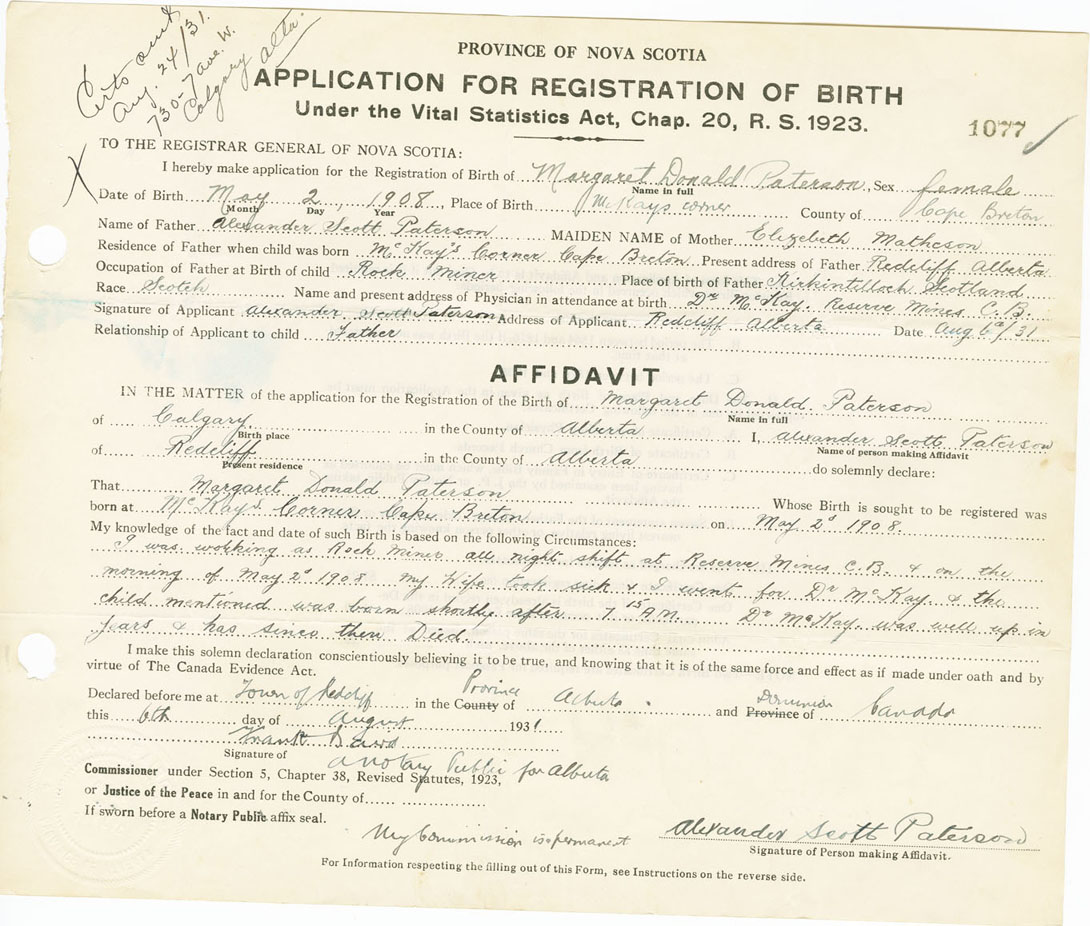 Certs out
Aug. 24/31.
730-7 ave. W.
Calgary Alta.
PROVINCE OF NOVA SCOTIA
APPLICATION FOR REGISTRATION OF BIRTH
Under the Vital Statistics Act, Chap. 20, R. S. 1923.
1077
TO THE REGISTRAR GENERAL OF NOVA SCOTIA:
I hereby make application for the Registration of Birth of Margaret Donald Paterson, Sex female
Name in full
Date of Birth May 2, 1908, Place of Birth McKays corner County of Cape Breton
Month Day Year
Name of Father Alexander Scott Paterson MAIDEN NAME of Mother Elizebeth Matheson
Residence of Father when child was born McKay's Corner Cape Breton Present address of Father Redcliff Alberta
Occupation of Father at Birth of child Rock Miner Place of birth of Father Kirkintilloch Scotland
Race Scotch Name and present address of Physician in attendance at birth Dr McKay. Reserve Mines C.B.
Signature of Applicant Alexander Scott Paterson Address of Applicant Redcliff Alberta Date Aug 6th/31
Relationship of Applicant to child Father
AFFIDAVIT
IN THE MATTER of the application for the Registration of the Birth of Margaret Donald Paterson
Name in full
of Calgary in the County of Alberta I, Alexander Scott Paterson
Birth place Name of person making Affidavit
of Redcliff in the County of Alberta do solemnly declare:
Present residence
That Margaret Donald Paterson Whose Birth is sought to be registered was
born at McKay's Corner Cape Breton on May 2d 1908.
My knowledge of the fact and date of such Birth is based on the following Circumstances:
I was working as Rock Miner all night shift at Reserve Mines C.B. & on the
morning of May 2d 1908 my Wife took sick & I went for Dr McKay. & the
child mentioned was born shortly after 7 15 A.M. Dr McKay was well up in
years & has since then Died.
I make this solemn declaration conscientiously believing it to be true, and knowing that it is of the same force and effect as if made under oath and by
virtue of The Canada Evidence Act.
Province Dominion
Declared before me at Town of Redcliff in the County of Alberta. and Province of Canada
this 6th day of August 1931
Frank
Signature of a Notary Public for Alberta
Commissioner under Section 5, Chapter 38, Revised Statutes, 1923,
or Justice of the Peace in and for the County of
If sworn before a Notary Public affix seal.
My Commission is permanent Alexander Scott Paterson
Signature of Person making Affidavit.
For Information respecting the filling out of this Form, see Instructions on the reverse side.